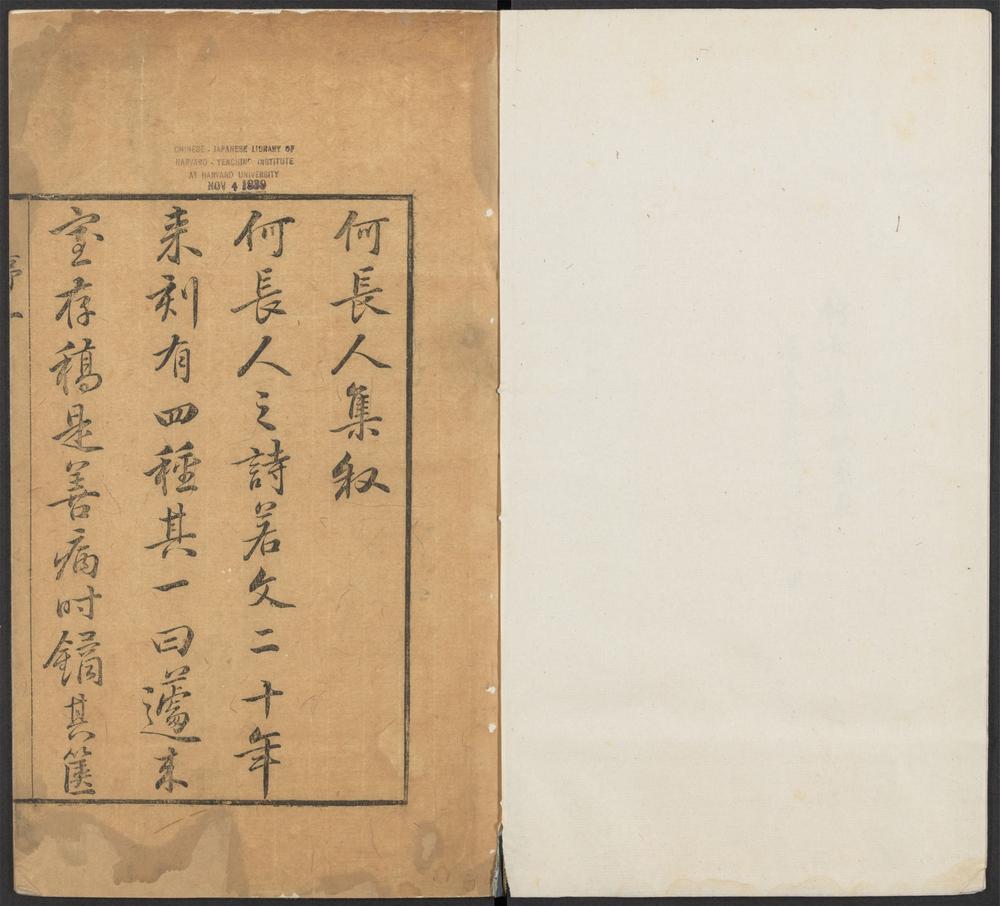 CHINESE - JAPANESE LIBRARY OF
HARVARD - YENCHING INSTITUTE
AT HARVARD UNIVERSITY
NOV 4 1939
何長人集叙
何長人之詩若文二十年
来刻有四種其一曰蘧来
室存稿是善病时鐫其篋
序 一